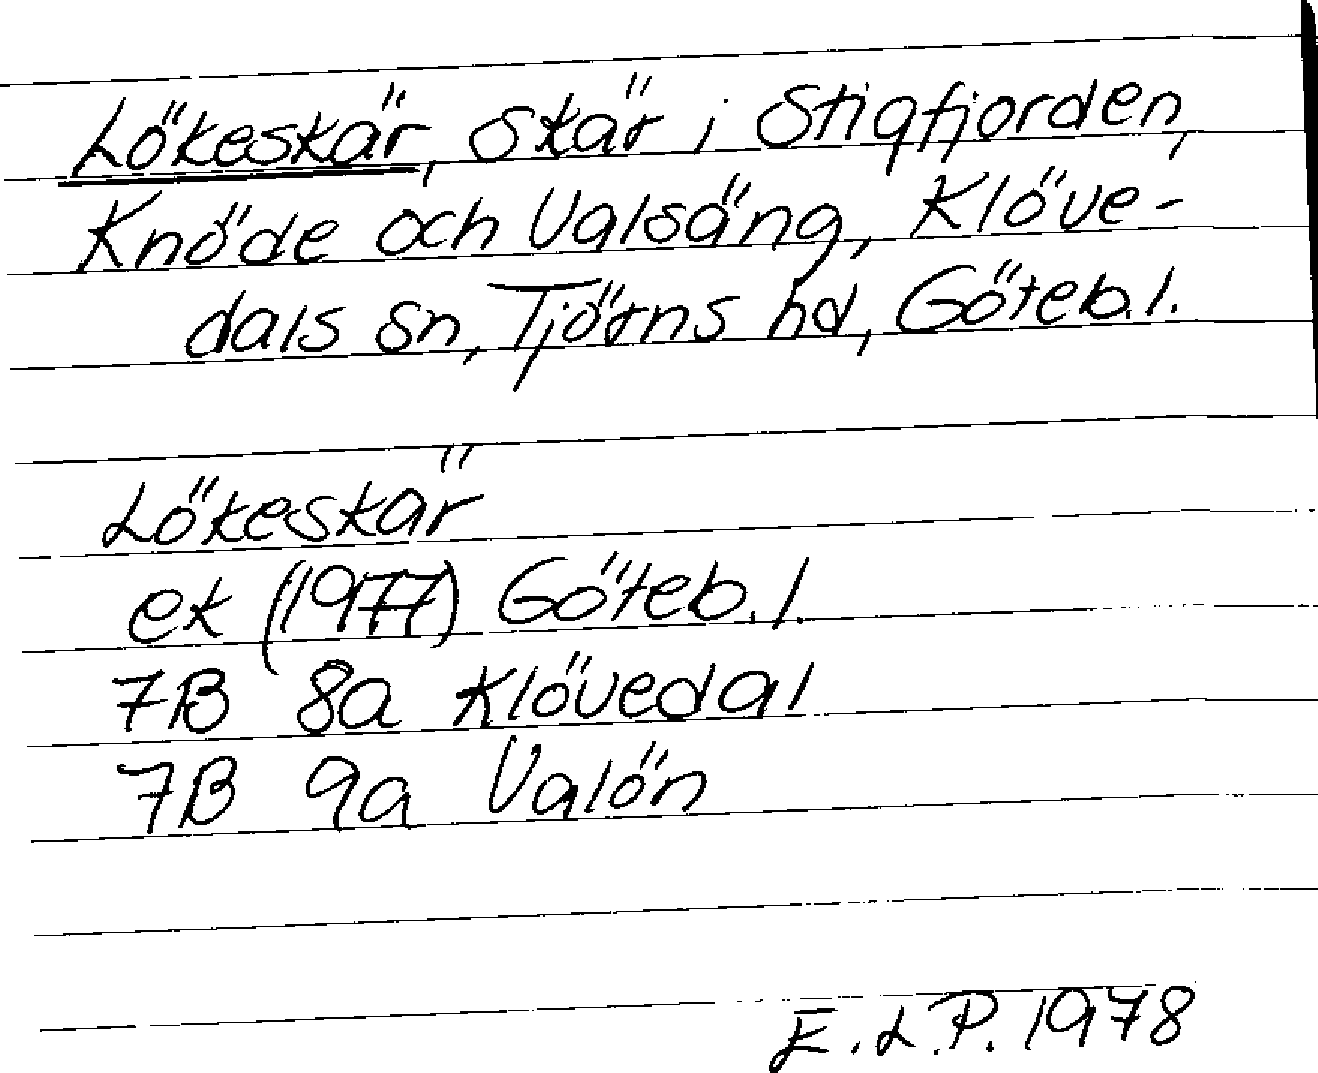 Lökeskär, skär i Stigfjorden,
Knöde och Valsäng, Klöve-
dals sn, Tjörns hd, Göteb.l.
Lökeskär
ek (1977) Göteb.l.
7B 8a Klövedal
7B 9a Valön
E.L.P. 1978